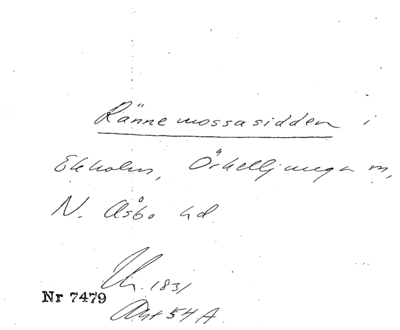 Rännemossasidden i
Ekholm, Örkelljunga sn,
N. Åsbo hd.
1831
Nr 7479
Akt 54 A.